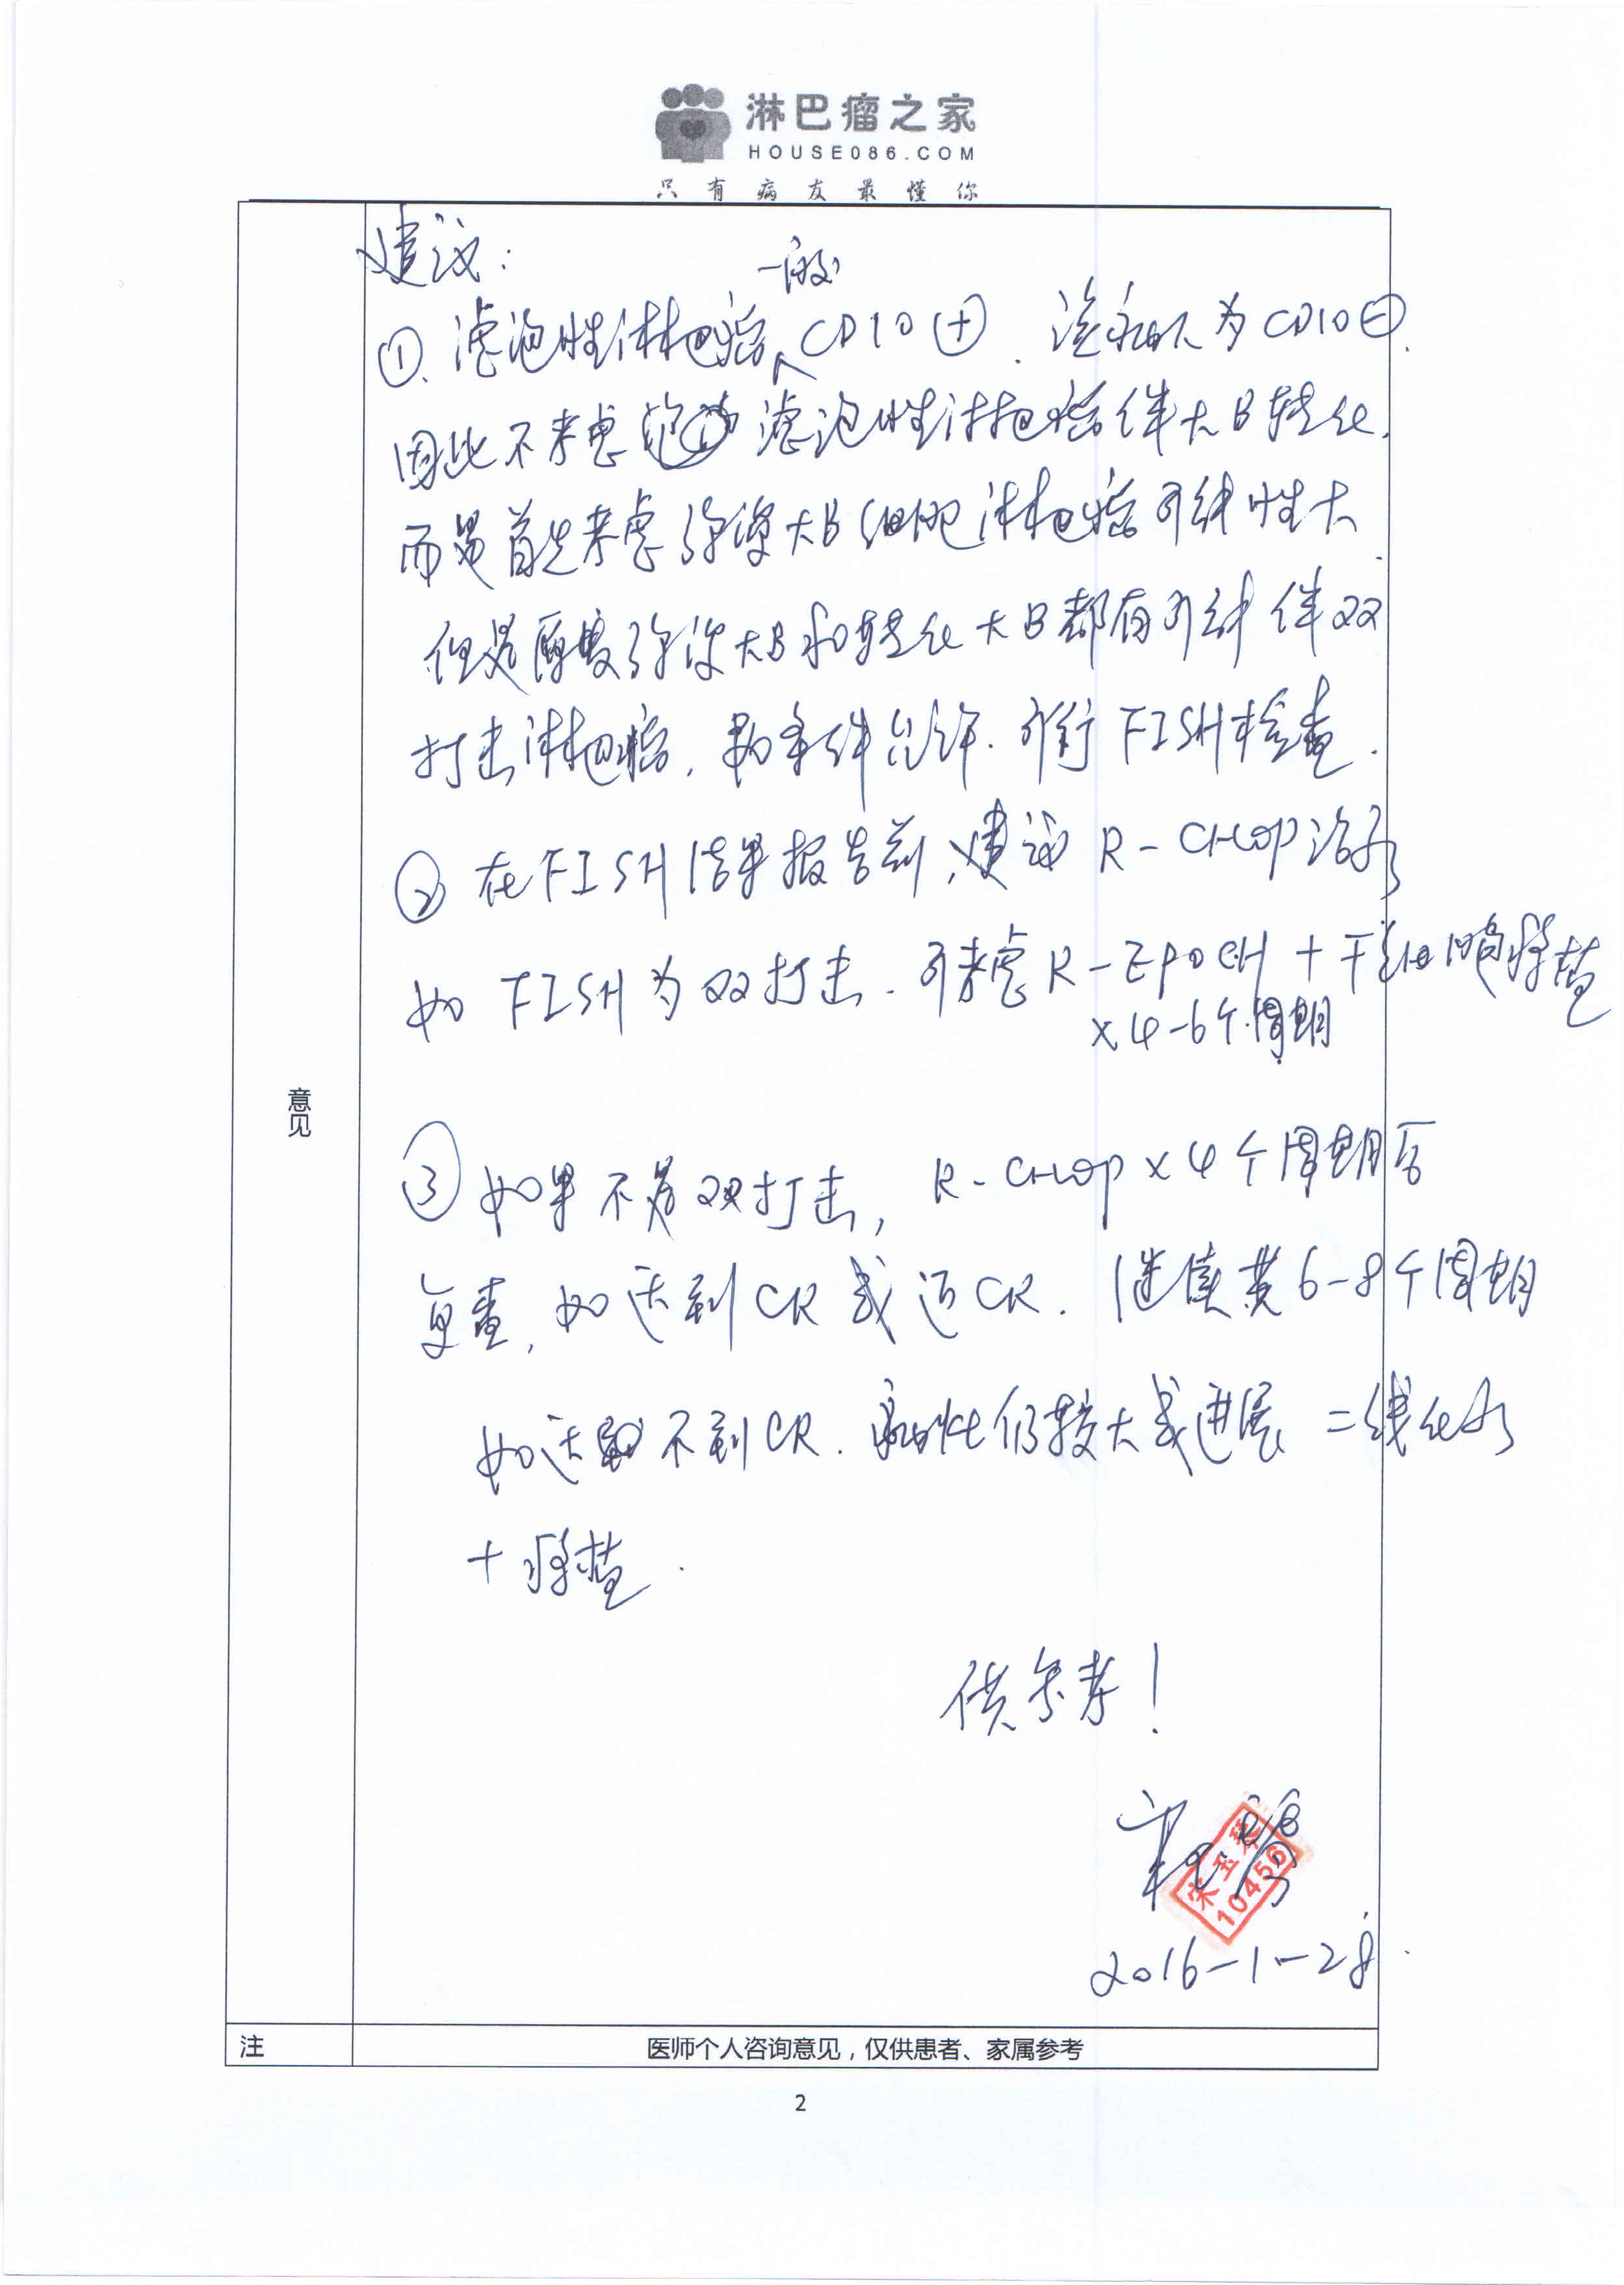 淋巴瘤之家
HOUSE086.COM
只有病友最懂你
建议:
一般
①.滤泡性淋巴瘤CD10⊕.该病人为CD10⊖.
因此不考虑滤泡性淋巴瘤伴大B转化.
而是首先考虑弥漫大B细胞淋巴瘤可能性大.
但是原发弥漫大B和转化大B都有可能伴双
打击淋巴瘤,条件允许.可行FISH检查.
② 在FISH结果报告前,建议R-CHOP治疗
如FISH为双打击.可考虑R-EPOCH+干细胞移植
×4-6个周期
意见
③ 如果不是双打击,R-CHOP×4个周期后
复查,如达到CR或近CR.继续 6-8个周期
如达不到CR.病灶仍较大或进展 二线化疗
+移植.
供参考!
宋玉琴
宋玉琴
10456
2016-1-28.
注
医师个人咨询意见,仅供患者、家属参考
2